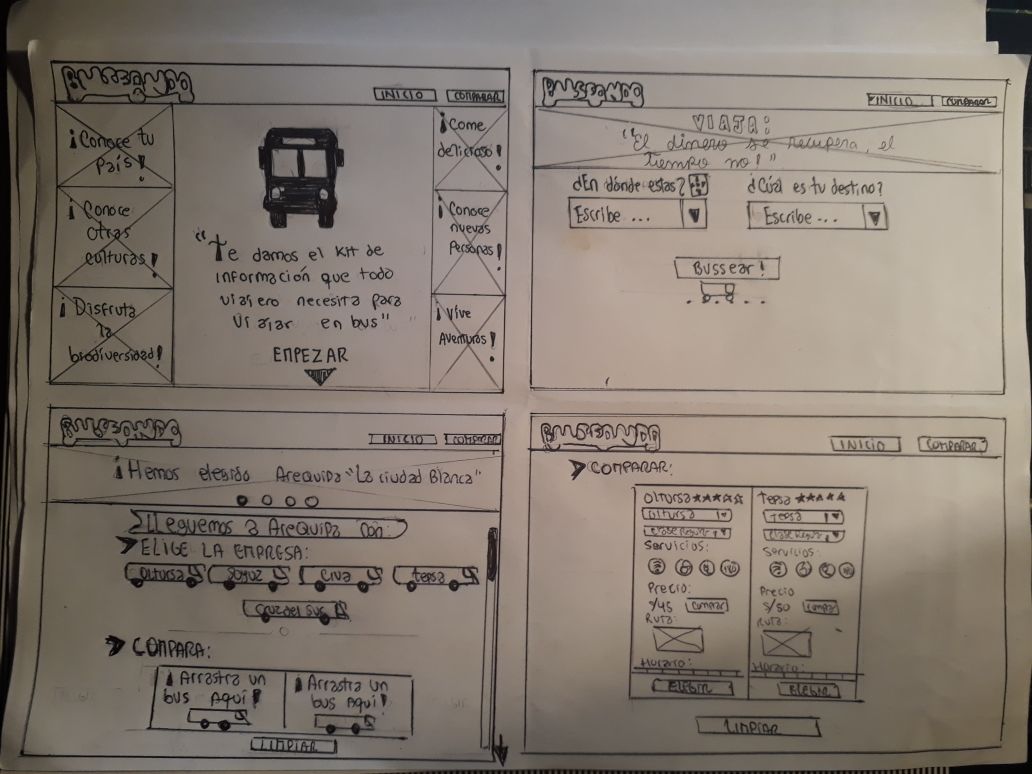 BUSSEANDO
INICIO
COMPARAR
¡Conoce tu
país!
¡Conoce
otras
culturas!
¡Disfruta
la
biodiversidad!
"Te damos el kit de
información que todo
viajero necesita para
viajar en bus"
EMPEZAR
¡Come
delicioso!
¡Conoce
nuevas
Personas!
¡Vive
Aventuras!
BUSSEANDO
INICIO
COMPARAR
VIAJA:
"El dinero se recupera, el
tiempo no!"
¿En dónde estas?
¿Cúal es tu destino?
Escribe ...
Escribe ...
Bussear!
BUSSEANDO
INICIO
COMPARAR
¡Hemos elegido Arequipa "La ciudad Blanca"
Lleguemos a Arequipa con:
ELIGE LA EMPRESA:
Oltursa
Soyuz
Civa
tepsa
Cruz del Sur
COMPARA:
¡Arrastra un
bus Aquí!
¡Arrastra un
bus Aquí!
LIMPIAR
BUSSEANDO
INICIO
COMPARAR
COMPARAR:
Oltursa
Oltursa
Clase Regular
Servicios:
Precio:
S/45 Comprar
Ruta:
Horario:
ELEGIR
Tepsa
Tepsa
Clase Regular
Servicios:
Precio
S/50 Comprar
Ruta:
Horario:
ELEGIR
LIMPIAR